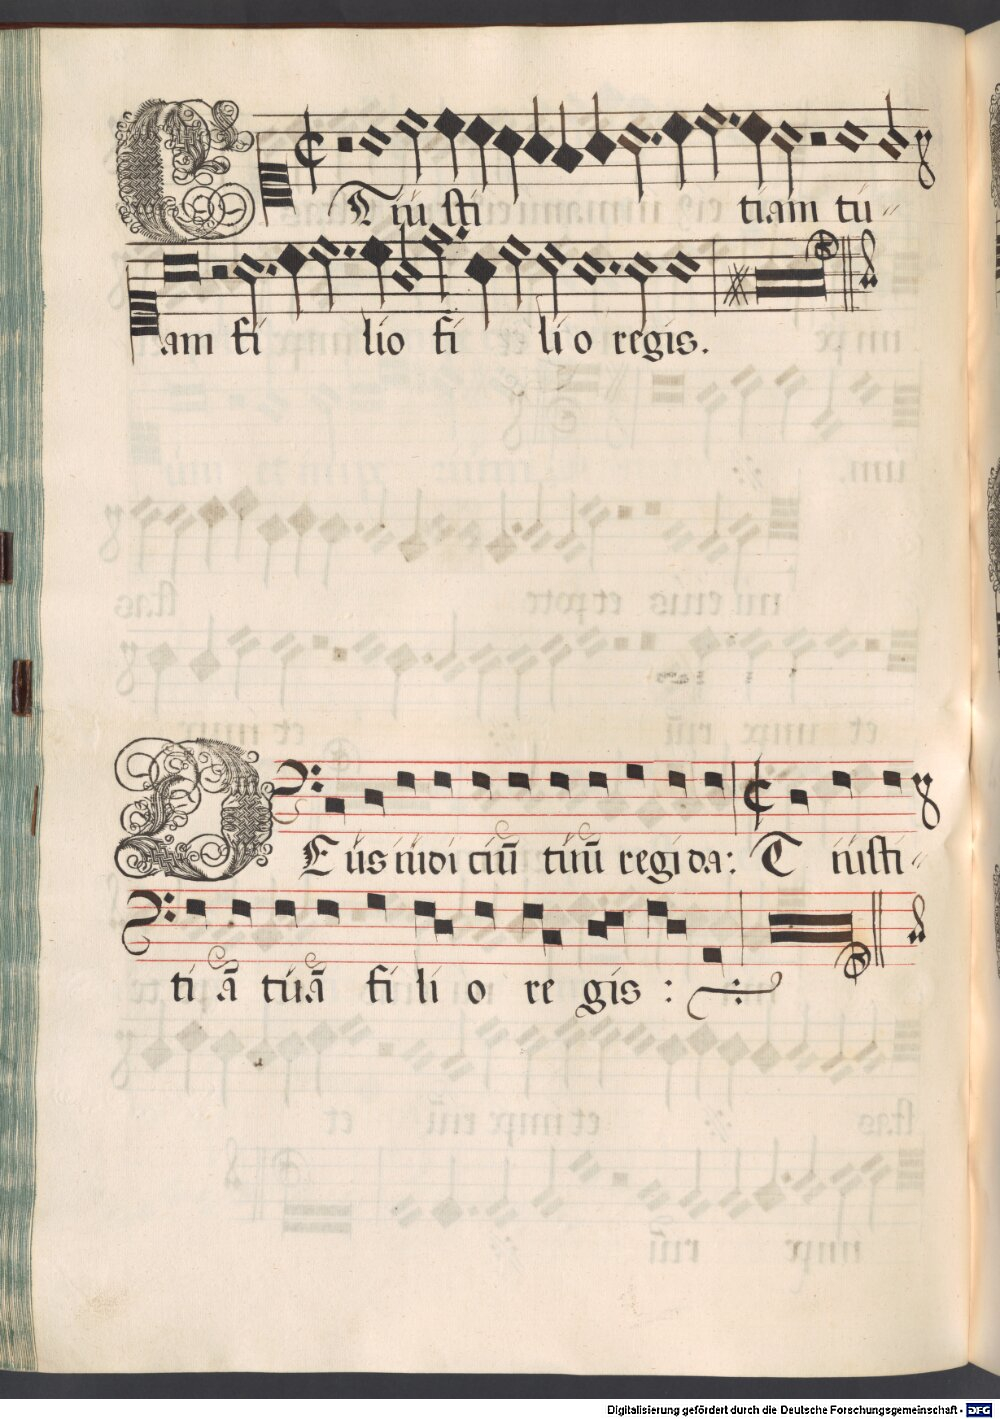 Et iusti tiam tu
am fi lio fi li o regis.
DEus iudi ciū tuū regi da: Et iusti
ti ā tuā fi li o re gis :
Digitalisierung gefördert durch die Deutsche Forschungsgemeinschaft - DFG